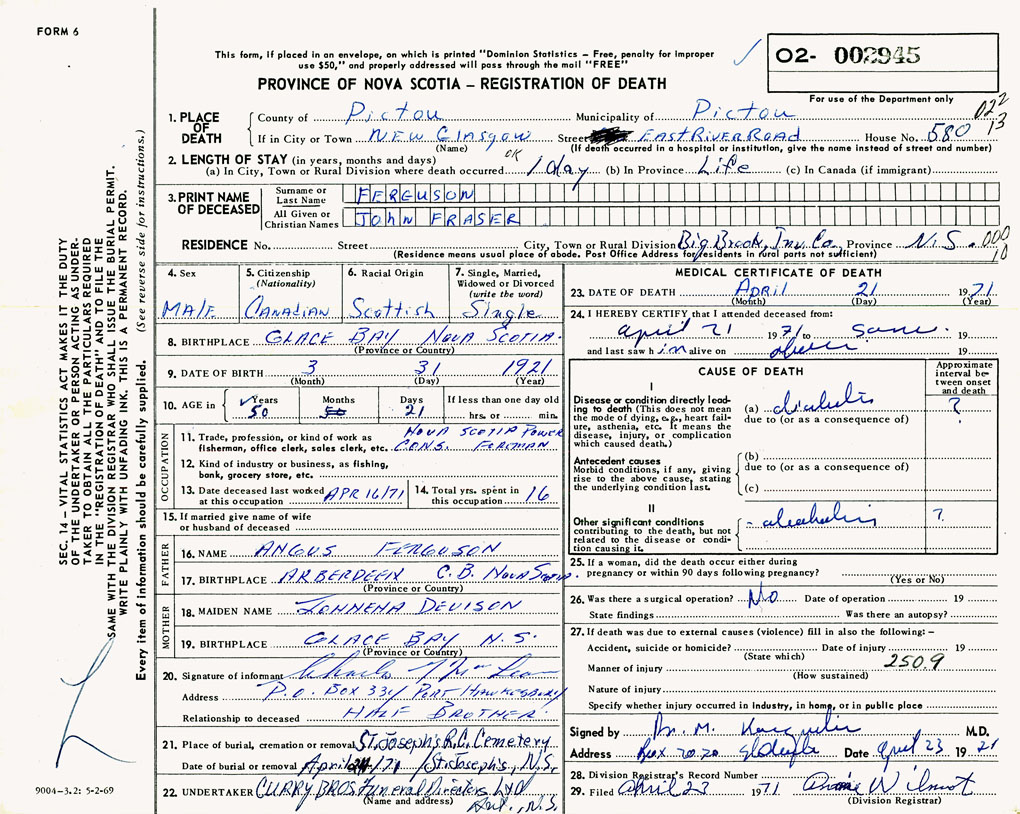 FORM 6
This form, if placed in an envelope, on which is printed "Dominion Statistics – Free, penalty for improper
use $50," and properly addressed will pass through the mail "FREE"
O2- 002945
For use of the Department only
PROVINCE OF NOVA SCOTIA – REGISTRATION OF DEATH
022
13
1. PLACE OF DEATH
County of Pictou Municipality of Pictou
If in City or Town NEW Glasgow Street EAST RIVER ROAD House No. 580
(Name) (If death occurred in a hospital or institution, give the name instead of street and number)
2. LENGTH OF STAY (in years, months and days) OK
(a) In City, Town or Rural Division where death occurred 1 day (b) In Province Life (c) In Canada (if immigrant)
3. PRINT NAME OF DECEASED
Surname or Last Name FERGUSON
All Given or Christian Names JOhN FRASER
RESIDENCE No. Street City, Town or Rural Division Big Brook, Inv. Co. Province N.S. 000
10
(Residence means usual place of abode. Post Office Address for residents in rural parts not sufficient)
4. Sex MALE
5. Citizenship (Nationality) CANADIAN
6. Racial Origin Scottish
7. Single, Married, Widowed or Divorced (write the word) Single
8. BIRTHPLACE GLACE BAY NOVA SCOTIA.
(Province or Country)
9. DATE OF BIRTH 3 31 1921
(Month) (Day) (Year)
10. AGE in Years 50 Months Days 21 If less than one day old
hrs. or min.
OCCUPATION
11. Trade, profession, or kind of work as fisherman, office clerk, sales clerk, etc. NOVA SCOTIA POWER CONS. FOREMAN
12. Kind of industry or business, as fishing, bank, grocery store, etc.
13. Date deceased last worked at this occupation APR 16/71
14. Total yrs. spent in this occupation 16
15. If married give name of wife or husband of deceased
FATHER
16. NAME ANGUS FERGUSON
17. BIRTHPLACE ARBERDEEN C.B. NOVA SCOTIA.
(Province or Country)
MOTHER
18. MAIDEN NAME JOHNENA DEVISON
19. BIRTHPLACE GLACE BAY N.S.
(Province or Country)
20. Signature of informant
Address P.O. BOX 334 PORT HAWKESBURY
Relationship to deceased HALF BROTHER
21. Place of burial, cremation or removal St. Joseph's R.C. Cemetery
Date of burial or removal April 24/71 St. Joseph's, N.S.
22. UNDERTAKER CURRY BROS Funeral Directors Ltd
(Name and address) Ant., N.S.
MEDICAL CERTIFICATE OF DEATH
23. DATE OF DEATH April 21 1971
(Month) (Day) (Year)
24. I HEREBY CERTIFY that I attended deceased from:
april 21 1971 to same 19
and last saw him alive on 19
CAUSE OF DEATH
Approximate interval between onset and death
I
Disease or condition directly leading to death (This does not mean the mode of dying, e.g., heart failure, asthenia, etc. It means the disease, injury, or complication which caused death.)
(a) diabetis ?
due to (or as a consequence of)
Antecedent causes
Morbid conditions, if any, giving rise to the above cause, stating the underlying condition last.
(b)
due to (or as a consequence of)
(c)
II
Other significant conditions contributing to the death, but not related to the disease or condition causing it.
?
25. If a woman, did the death occur either during pregnancy or within 90 days following pregnancy?
(Yes or No)
26. Was there a surgical operation? No Date of operation 19
State findings Was there an autopsy?
27. If death was due to external causes (violence) fill in also the following:–
Accident, suicide or homicide? Date of injury 19
(State which)
250.9
Manner of injury
(How sustained)
Nature of injury
Specify whether injury occurred in industry, in home, or in public place
Signed by M.D.
Address Box 2020 Date April 23 1921
28. Division Registrar's Record Number
29. Filed April 23 1971 Annie Wilmot
(Division Registrar)
SEC. 14 – VITAL STATISTICS ACT MAKES IT THE DUTY
OF THE UNDERTAKER OR PERSON ACTING AS UNDER-
TAKER TO OBTAIN ALL THE PARTICULARS REQUIRED
IN THE "REGISTRATION OF DEATH" AND TO FILE THE
SAME WITH THE DIVISION REGISTRAR WHO SHALL ISSUE THE BURIAL PERMIT.
WRITE PLAINLY WITH UNFADING INK. THIS IS A PERMANENT RECORD.
Every item of information should be carefully supplied. (See reverse side for instructions.)
9004-3.2: 5-2-69